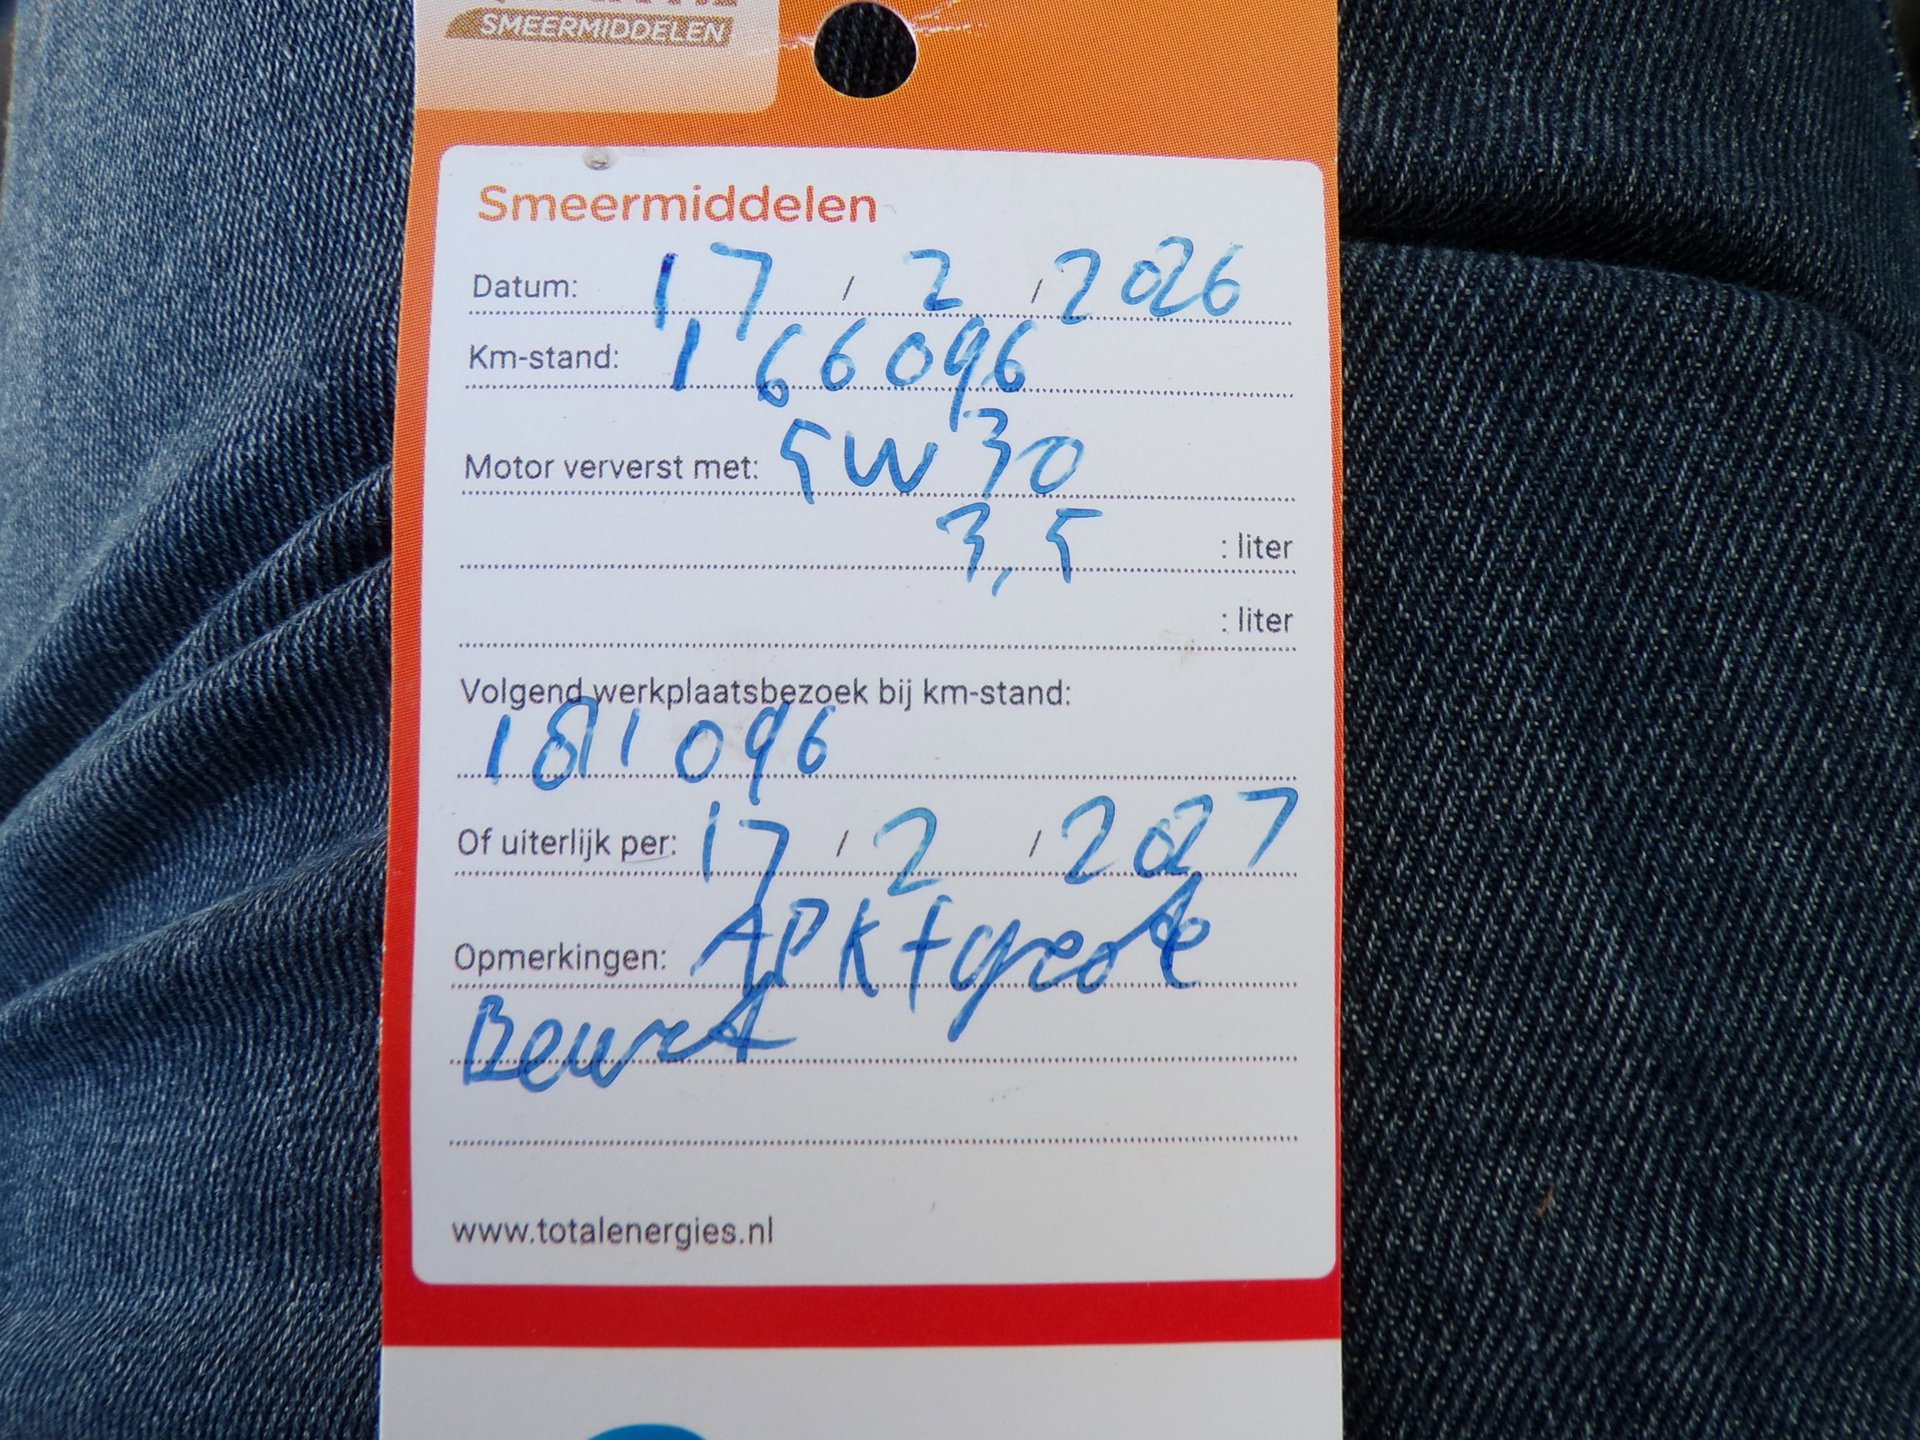 SMEERMIDDELEN
Smeermiddelen
Datum: 17 / 2 / 2026
Km-stand: 166096
Motor ververst met: 5W30
3,5 : liter
: liter
Volgend werkplaatsbezoek bij km-stand:
181096
Of uiterlijk per: 17 / 2 / 2027
Opmerkingen: APK + grote
Beurt
www.totalenergies.nl